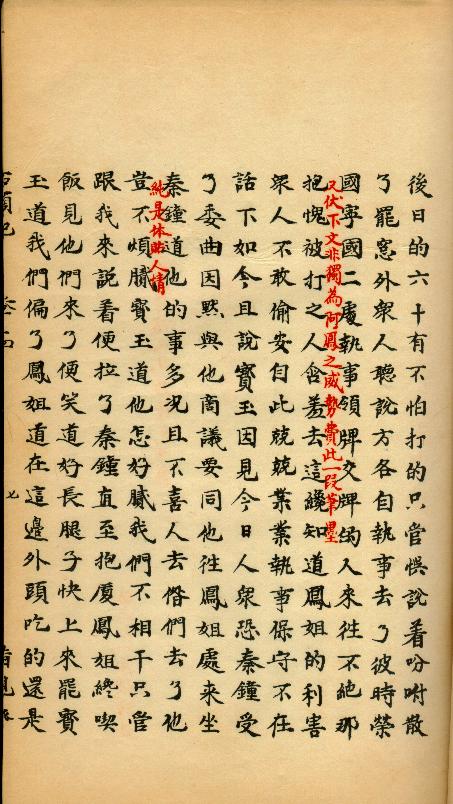 後日的六十有不怕打的只管悞說着吩咐散
了罷窓外衆人聽說方各自執事去了彼時榮
國寧國二處執事領牌交牌的人來往不絶那
又伏下文非獨為阿鳳之威勢費此一段筆墨
抱愧被打之人含羞去這纔知道鳳姐的利害
衆人不敢偷安自此兢兢業業執事保守不在
話下如今且說寳玉因見今日人衆恐秦鐘受
了委曲因黙與他商議要同他往鳳姐處來坐
秦鐘道他的事多况且不喜人去偺們去了他
純是体貼人情
豈不煩膩寳玉道他怎好膩我們不相干只管
跟我來說着便拉了秦鐘直至抱厦鳳姐終喫
飯見他們來了便笑道好長腿子快上來罷寳
玉道我們偏了鳳姐道在這邉外頭吃的還是
七